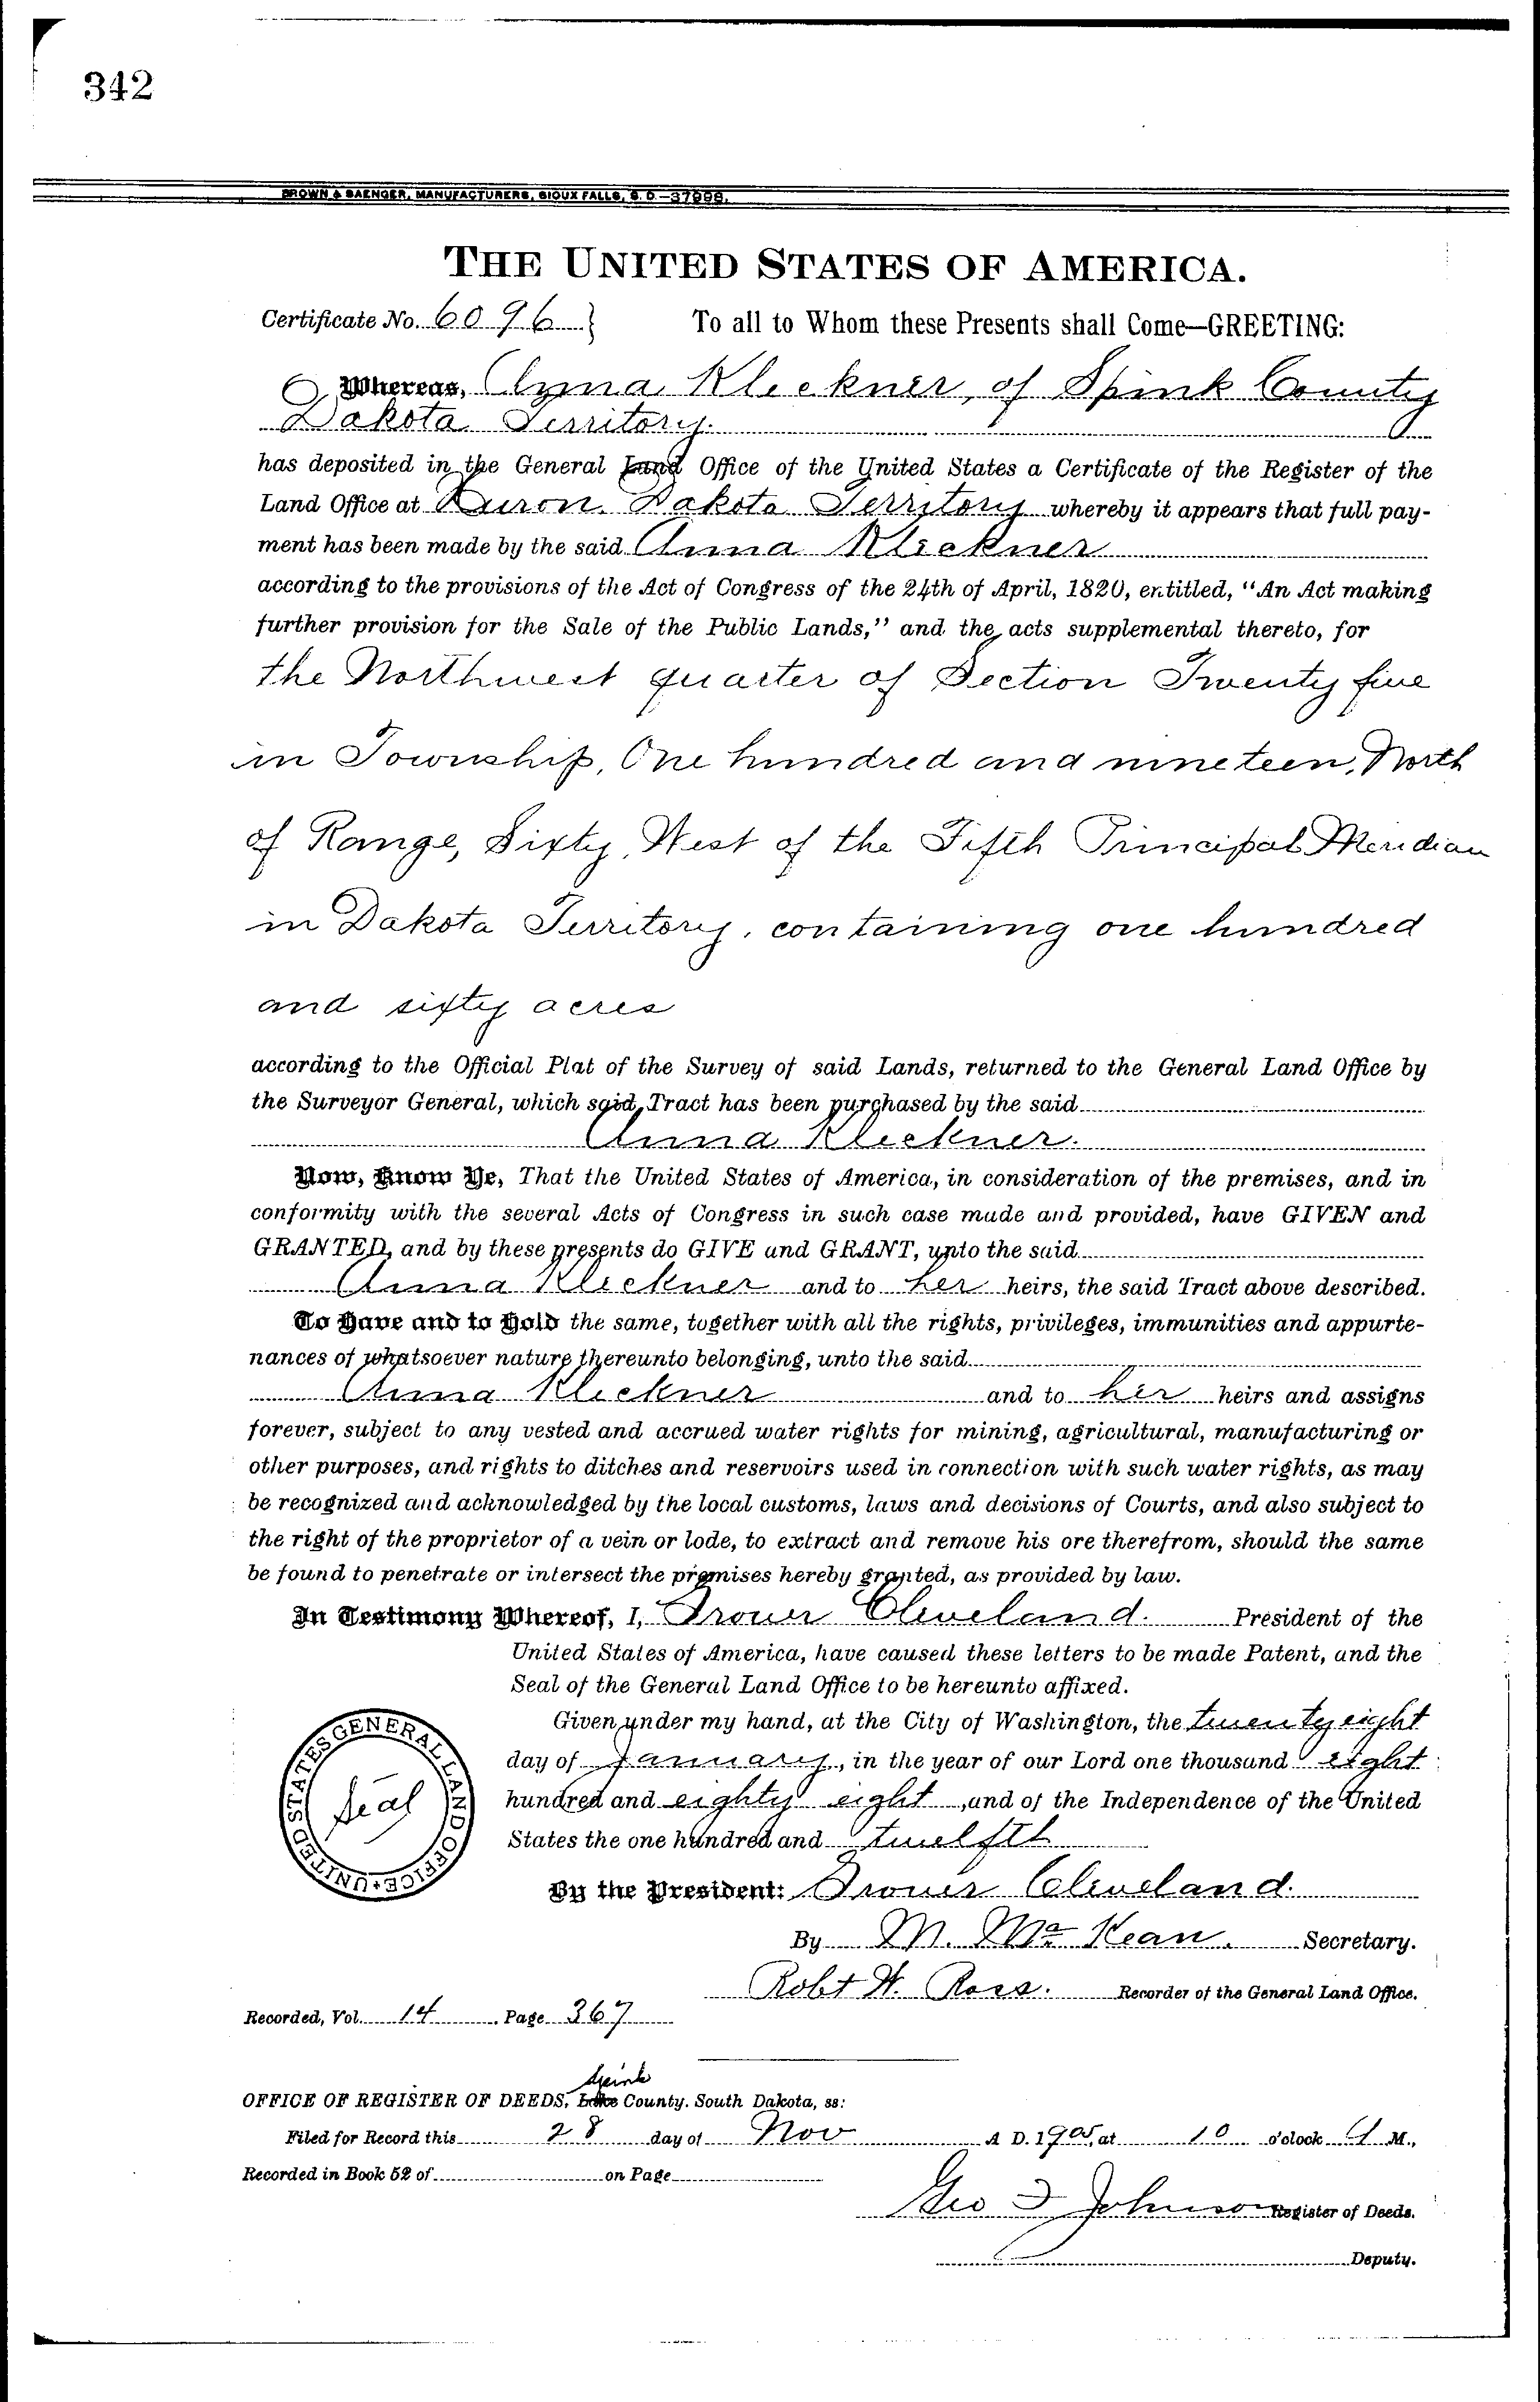 342
BROWN & SAENGER, MANUFACTURERS, SIOUX FALLS, S. D.—37998.
THE UNITED STATES OF AMERICA.
Certificate No. 6096 } To all to Whom these Presents shall Come—GREETING:
Whereas, Anna Kleckner, of Spink County
Dakota Territory.
has deposited in the General Land Office of the United States a Certificate of the Register of the
Land Office at Huron Dakota Territory whereby it appears that full pay-
ment has been made by the said Anna Kleckner
according to the provisions of the Act of Congress of the 24th of April, 1820, entitled, "An Act making
further provision for the Sale of the Public Lands," and the acts supplemental thereto, for
the Northwest quarter of Section Twenty five
in Township, One hundred and nineteen, North
of Range, Sixty, West of the Fifth Principal Meridian
in Dakota Territory, containing one hundred
and sixty acres
according to the Official Plat of the Survey of said Lands, returned to the General Land Office by
the Surveyor General, which said Tract has been purchased by the said
Anna Kleckner.
Now, Know Ye, That the United States of America, in consideration of the premises, and in
conformity with the several Acts of Congress in such case made and provided, have GIVEN and
GRANTED, and by these presents do GIVE and GRANT, unto the said
Anna Kleckner and to her heirs, the said Tract above described.
To Have and to Hold the same, together with all the rights, privileges, immunities and appurte-
nances of whatsoever nature thereunto belonging, unto the said
Anna Kleckner and to her heirs and assigns
forever, subject to any vested and accrued water rights for mining, agricultural, manufacturing or
other purposes, and rights to ditches and reservoirs used in connection with such water rights, as may
be recognized and acknowledged by the local customs, laws and decisions of Courts, and also subject to
the right of the proprietor of a vein or lode, to extract and remove his ore therefrom, should the same
be found to penetrate or intersect the premises hereby granted, as provided by law.
In Testimony Whereof, I, Grover Cleveland. President of the
United States of America, have caused these letters to be made Patent, and the
Seal of the General Land Office to be hereunto affixed.
Given under my hand, at the City of Washington, the twenty eight
day of January, in the year of our Lord one thousand eight
hundred and eighty eight, and of the Independence of the United
States the one hundred and twelfth
UNITED STATES GENERAL LAND OFFICE
Seal
By the President: Grover Cleveland.
By M. McKean. Secretary.
Robt W. Ross. Recorder of the General Land Office.
Recorded, Vol. 14, Page 367
Spink
OFFICE OF REGISTER OF DEEDS, Lake County, South Dakota, ss:
Filed for Record this 28 day of Nov A D. 1905, at 10 o'clock A M.,
Recorded in Book 52 of on Page
Geo I Johnson Register of Deeds.
Deputy.